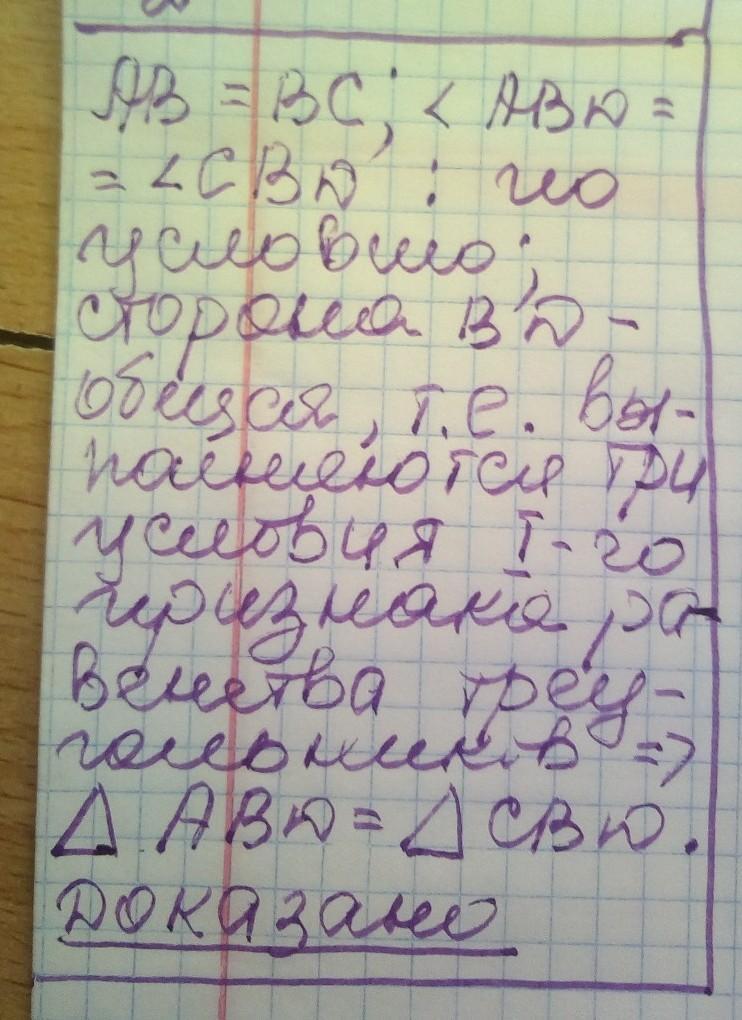 AB = BC; < ABD =
= <CBD : по
условию;
сторона BD -
общая, т.е. вы-
полняются три
условия I-го
признака ра-
венства треу-
гольников =>
△ ABD = △ CBD.
Доказано